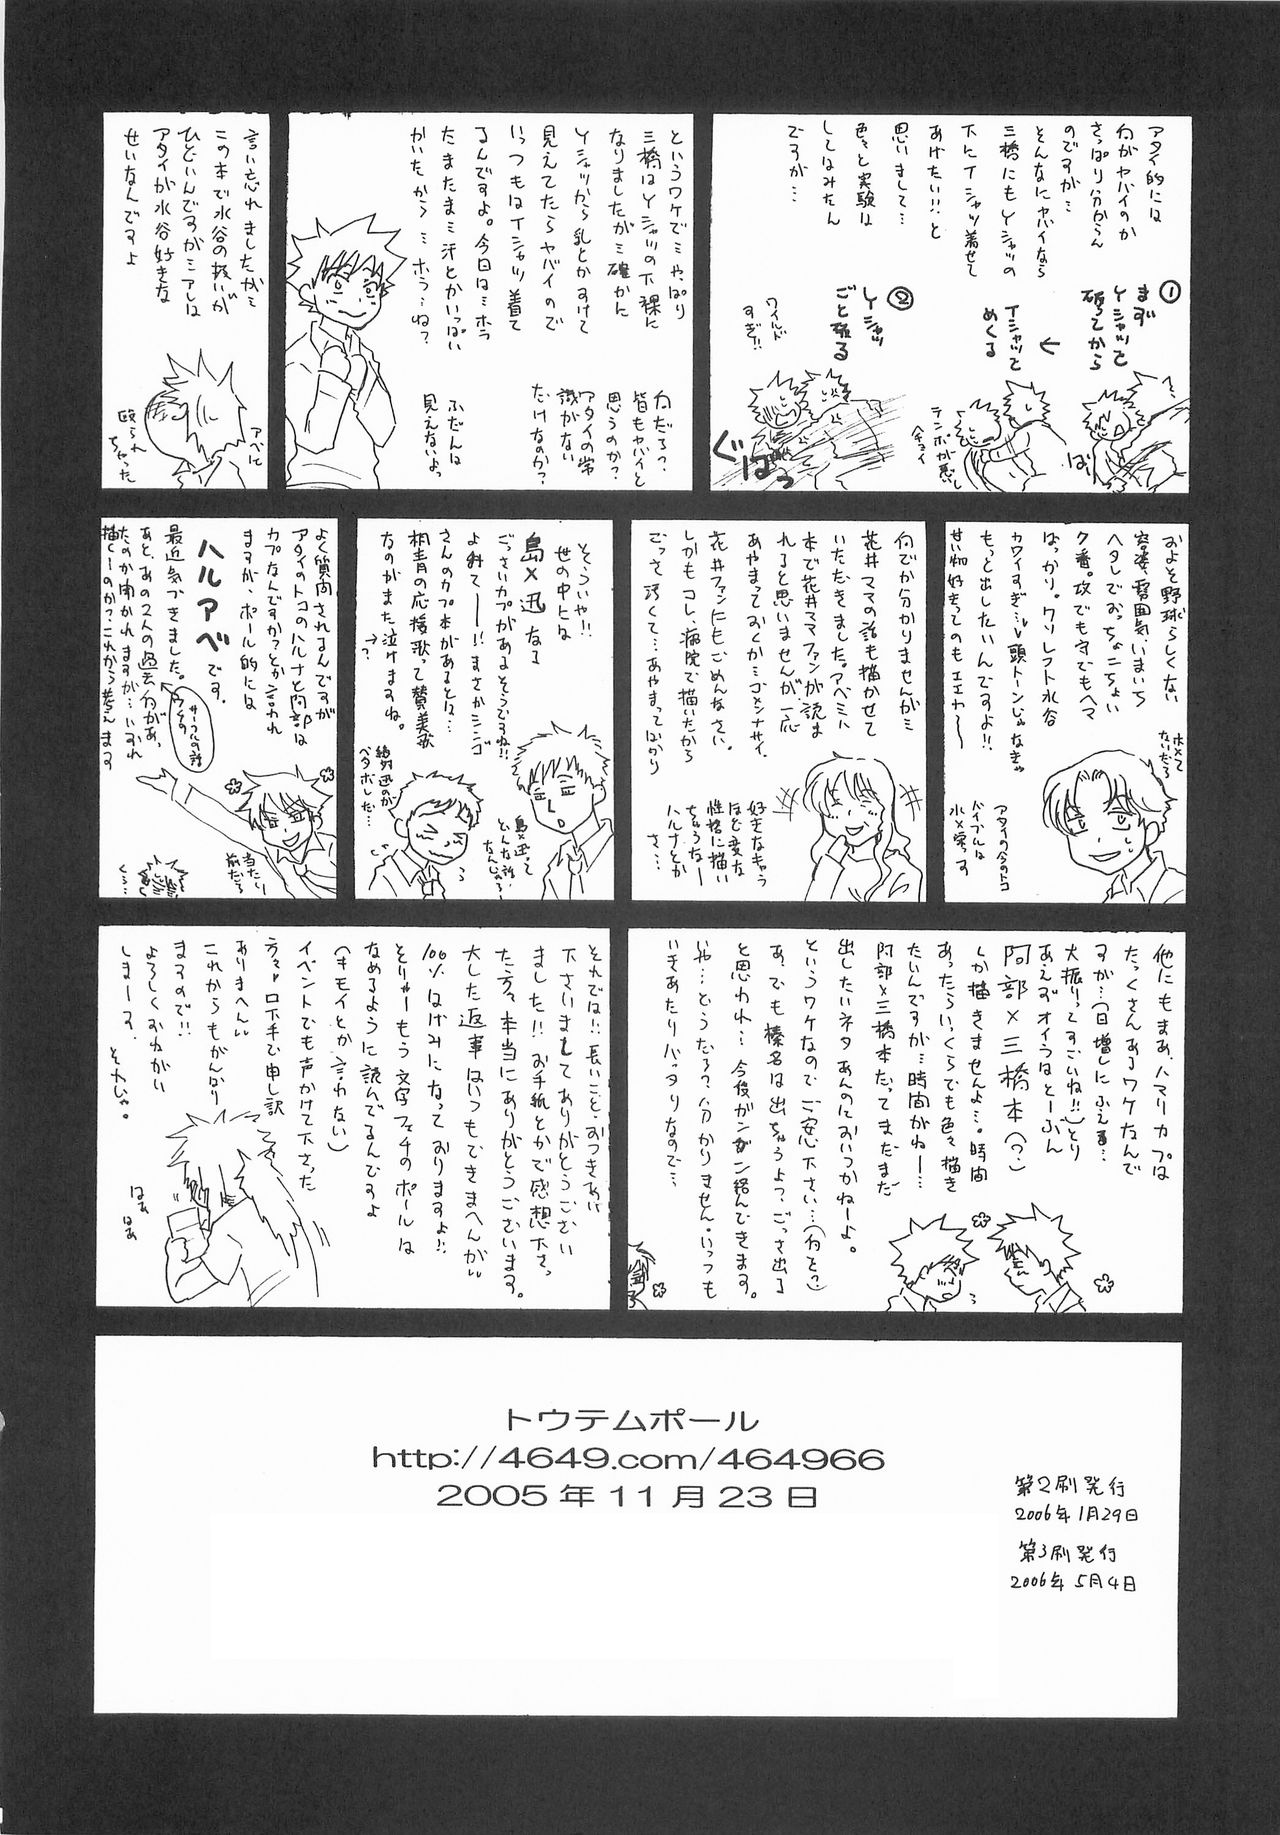 アタイ的には
何がヤバイのか
さっぱり分からん
のですが…
そんなにヤバイなら
三橋にもYシャツの
下にTシャツ着せて
あげたい!!と
思いまして…
色々と実験は
してはみたん
ですが…
①
まず
Yシャツを
破ってから
Tシャツを
めくる
テンポが悪い
②
Yシャツ
ごと破る
ワイルド
すぎ!!
というワケで…やっぱり
三橋はYシャツの下裸に
なりましたが…確かに
Yシャツから乳とかすけて
見えてたらヤバイので
いっつもはTシャツ着て
るんですよ。今日は…ホラ
たまたま…汗とかいっぱい
かいたから…ホラ…ね?
何だろう?
皆もヤバイと
思うのか?
アタイの常
識がない
だけなのか?
ふだんは
見えないよっ
言い忘れましたが…
この本で水谷の扱いが
ひどいんですが…アレは
アタイが水谷好きな
せいなんですよ
アベに
殴られ
ちゃった
およそ野球らしくない
容姿、雰囲気、いまいち
ヘタレでおっちょこちょい
ク番。攻でも守でもヘマ
ばっかり。クソレフト水谷
カワイすぎ…頭トーンじゃなきゃ
もっと出したいんですよ!!
せい畑好きってのもエエわ〜
ホメて
ないだろ
アタイの今のトコ
バイブルは
水×栄っす
何でか分かりませんが…
花井ママの話も描かせて
いただきました。アベミハ
本で花井ママファンが読ま
れると思いませんが、一応
あやまっておくか…ゴメンナサイ。
花井ファンにもごめんなさい。
しかもコレ、病院で描いたから
ごっさ汚くて…あやまってばかり
好きなキャラ
ほど変な
性格に描い
ちゃうなー
ハルナとか
さ…
そういや!!
世の中には
島×迅なる
ごっさいカプがあるそうですね!!
よみてーー!!まさかシンゴ
さんのカプ本があるとは…
桐青の応援歌って賛美歌
なのがまた泣けますね。
→?
島×迅って
どんな話
なんじゃろ…
絶対迅のが
ベタボレした…
よく質問されるんですが
アタイのトコのハルナと阿部は
カプなんですか?とか言われ
ますが、ポール的には
ハルアベです。
最近気づきました。
あと、あの2人の過去
たのか聞かれますが…いずれ
描くーのか?これから考えます
当たり
前だろ
くっ…
他にもまあ、ハマリカプは
たっくさんあるワケなんで
すが…(日増しにふえる…
大振りってすごいね!!)とり
あえずオイラはとーぶん
阿部×三橋本(?)
しか描きませんよ…。時間
あったらいっくらでも色々描き
たいんですが…時間がねー…
阿部×三橋本だってまだまだ
出したいネタあんのにおいつかねーよ。
というワケなのでご安心下さい…(何を?)
あ、でも榛名は出ちゃうよ?ごっさ出る
と思われ…今後がンガン絡んできます。
いや…どうだろ?分かりません。いっつも
いきあたりバッタリなので…
それでは!!長いことおつきあい
下さいましてありがとうござい
ました!!お手紙とかで感想下さっ
た方々本当にありがとうございます。
大した返事はいつもできまへんが、
100%はげみになっておりますよ!!
そりゃーもう文字フェチのポールは
なめるように読んでるんですよ
(キモイとか言わない)
イベントでも声かけて下さった
方々口下手で申し訳
ありまへん
これからもがんばり
ますので!!
よろしくおねがい
しまーす。
それじゃ。
はぁ
はぁ
トウテムポール
http://4649.com/464966
2005年11月23日
第2刷発行
2006年1月29日
第3刷発行
2006年5月4日